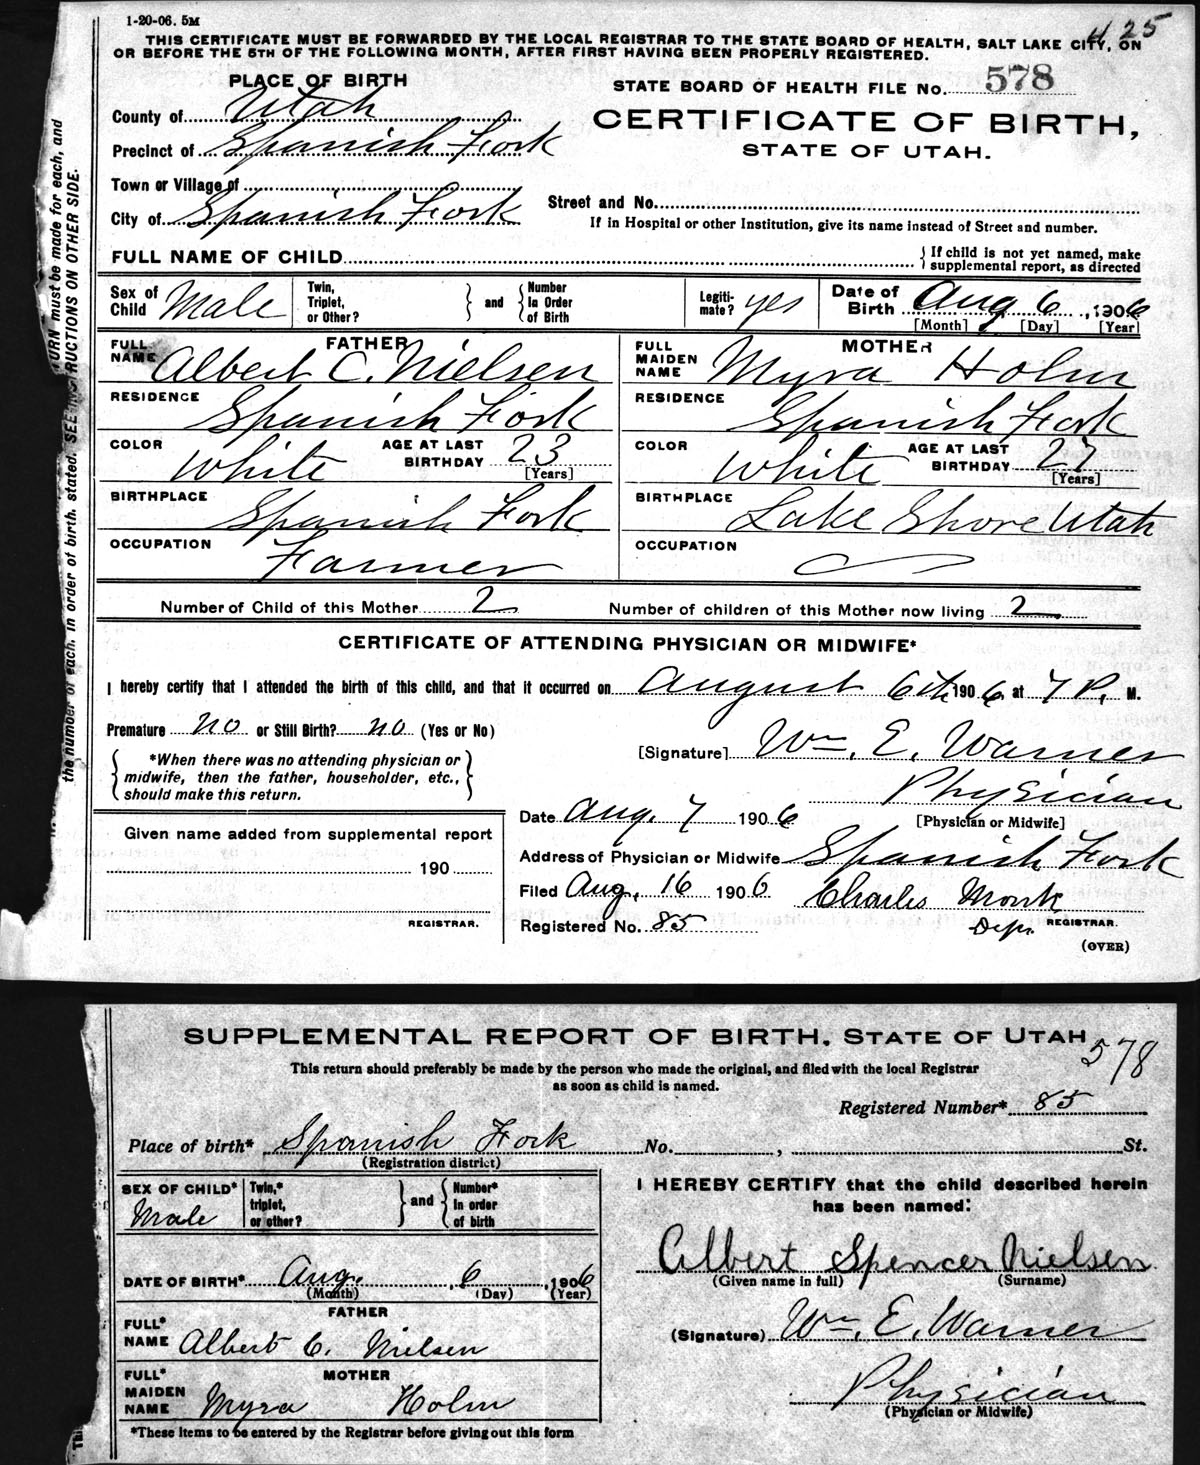 1-20-06. 5M
425
THIS CERTIFICATE MUST BE FORWARDED BY THE LOCAL REGISTRAR TO THE STATE BOARD OF HEALTH, SALT LAKE CITY, ON
OR BEFORE THE 5TH OF THE FOLLOWING MONTH, AFTER FIRST HAVING BEEN PROPERLY REGISTERED.
PLACE OF BIRTH
STATE BOARD OF HEALTH FILE No. 578
County of Utah
CERTIFICATE OF BIRTH,
Precinct of Spanish Fork
STATE OF UTAH.
Town or Village of
City of Spanish Fork
Street and No.
If in Hospital or other Institution, give its name instead of Street and number.
FULL NAME OF CHILD
If child is not yet named, make
supplemental report, as directed
Sex of Child Male
Twin, Triplet, or Other?
and
Number In Order of Birth
Legiti-mate? yes
Date of Birth Aug 6, 1906
[Month] [Day] [Year]
FATHER
FULL NAME Albert C. Nielsen
MOTHER
FULL MAIDEN NAME Myra Holm
RESIDENCE Spanish Fork
RESIDENCE Spanish Fork
COLOR White
AGE AT LAST BIRTHDAY 23
[Years]
COLOR White
AGE AT LAST BIRTHDAY
[Years]
BIRTHPLACE Spanish Fork
BIRTHPLACE Lake Shore Utah
OCCUPATION Farmer
OCCUPATION
Number of Child of this Mother 2
Number of children of this Mother now living 2
CERTIFICATE OF ATTENDING PHYSICIAN OR MIDWIFE*
I hereby certify that I attended the birth of this child, and that it occurred on August 6th 1906 at 7 P. M.
Premature no or Still Birth? no (Yes or No)
[Signature] Wm. E. Warner
*When there was no attending physician or
midwife, then the father, householder, etc.,
should make this return.
Physician
[Physician or Midwife]
Date Aug. 7 1906
Given name added from supplemental report
190
REGISTRAR.
Address of Physician or Midwife Spanish Fork
Filed Aug. 16 1906 Charles Monk
Registered No. 85
Dep. REGISTRAR.
(OVER)
URN must be made for each, and
the number of each, in order of birth, stated. SEE INSTRUCTIONS ON OTHER SIDE.
SUPPLEMENTAL REPORT OF BIRTH, STATE OF UTAH
578
This return should preferably be made by the person who made the original, and filed with the local Registrar
as soon as child is named.
Registered Number* 85
Place of birth* Spanish Fork No. , St.
(Registration district)
SEX OF CHILD* Male
Twin,* triplet, or other?
and
Number* In order of birth
I HEREBY CERTIFY that the child described herein
has been named:
Albert Spencer Nielsen
(Given name in full) (Surname)
DATE OF BIRTH* Aug. 6, 1906
(Month) (Day) (Year)
FATHER
FULL* NAME Albert C. Nielsen
(Signature) Wm. E. Warner
MOTHER
FULL* MAIDEN NAME Myra Holm
Physician
(Physician or Midwife)
*These items to be entered by the Registrar before giving out this form